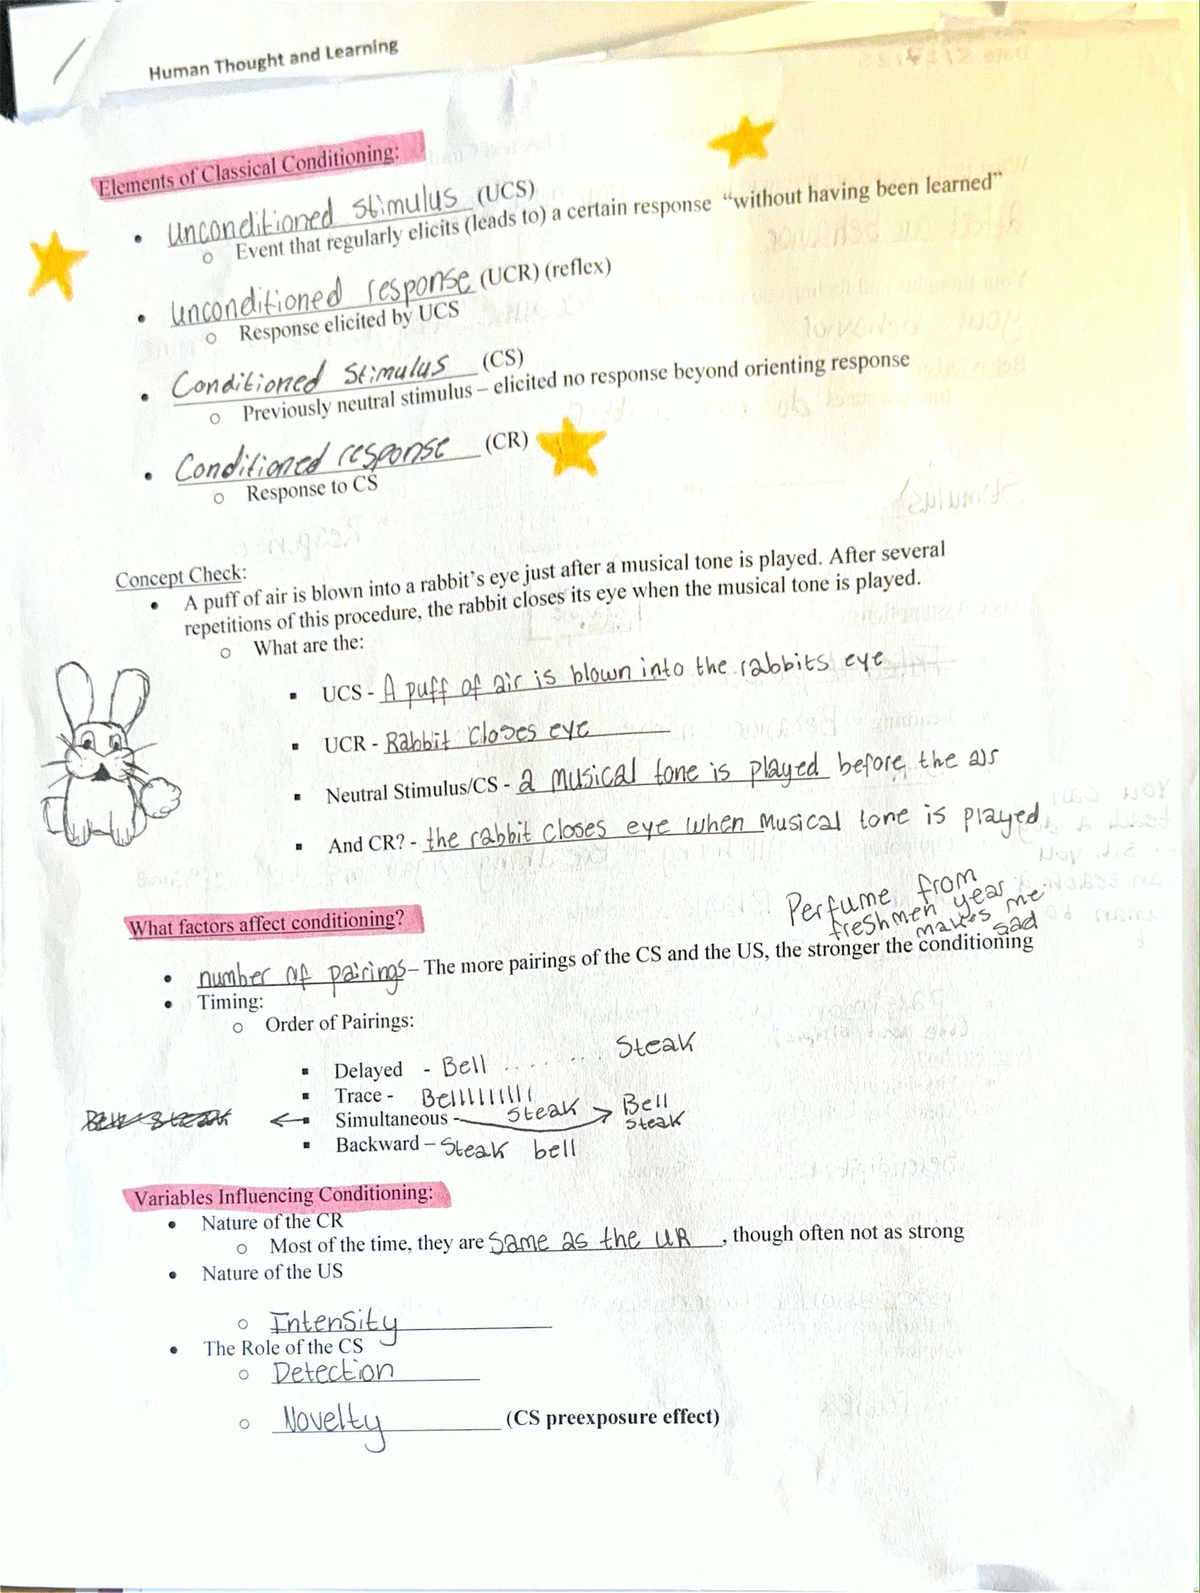 Human Thought and Learning
Elements of Classical Conditioning:
• Unconditioned Stimulus (UCS)
o Event that regularly elicits (leads to) a certain response "without having been learned"
• Unconditioned response (UCR) (reflex)
o Response elicited by UCS
• Conditioned Stimulus (CS)
o Previously neutral stimulus – elicited no response beyond orienting response
• Conditioned response (CR)
o Response to CS
Concept Check:
• A puff of air is blown into a rabbit's eye just after a musical tone is played. After several
repetitions of this procedure, the rabbit closes its eye when the musical tone is played.
o What are the:
▪ UCS - A puff of air is blown into the rabbits eye
▪ UCR - Rabbit closes eye
▪ Neutral Stimulus/CS - a musical tone is played before the air
▪ And CR? - the rabbit closes eye when musical tone is played
Perfume from
freshmen year
makes me
sad
What factors affect conditioning?
• number of pairings – The more pairings of the CS and the US, the stronger the conditioning
• Timing:
o Order of Pairings:
▪ Delayed - Bell ........ Steak
▪ Trace - Belllllllll
Steak
▪ Simultaneous - Bell
Steak
▪ Backward – Steak bell
Variables Influencing Conditioning:
• Nature of the CR
o Most of the time, they are same as the UR, though often not as strong
• Nature of the US
o Intensity
• The Role of the CS
o Detection
o Novelty (CS preexposure effect)